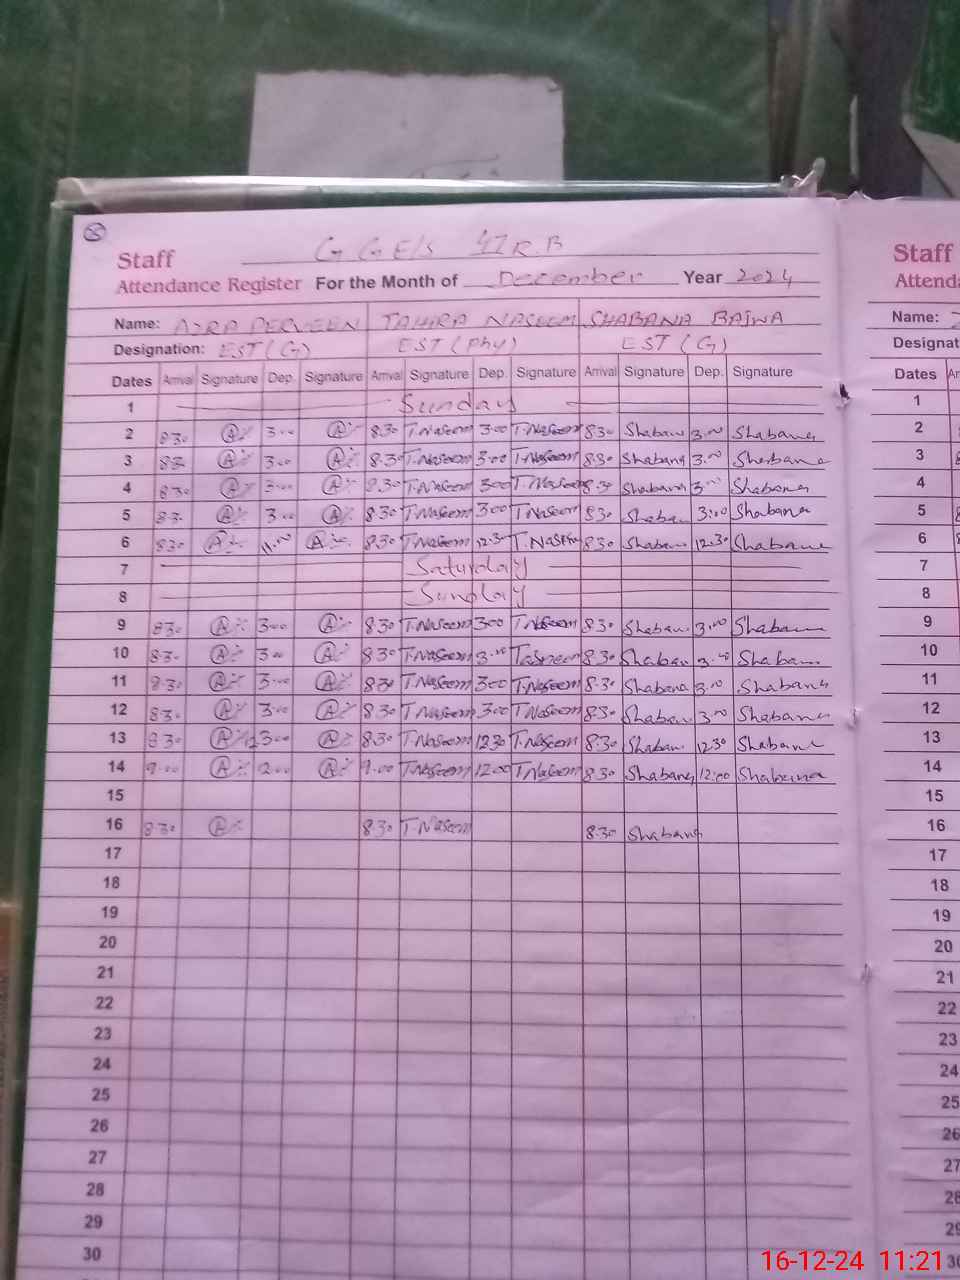 Staff G G E/S 41 R.B
Attendance Register For the Month of December Year 2024
Name: AZRA PERVEEN TAHIRA NASEEM SHABANA BAJWA
Designation: EST (G) EST (Phy) EST (G)
Dates Arrival Signature Dep. Signature Arrival Signature Dep. Signature Arrival Signature Dep. Signature
1 Sunday
2 8.30 A 3.00 A 8.30 T.Naseem 3.00 T.Naseem 8.30 Shabana 3.00 Shabana
3 8.30 A 3.00 A 8.30 T.Naseem 3.00 T.Naseem 8.30 Shabana 3.00 Shabana
4 8.30 A 3.00 A 8.30 T.Naseem 3.00 T.Naseem 8.30 Shabana 3.00 Shabana
5 8.30 A 3.00 A 8.30 T.Naseem 3.00 T.Naseem 8.30 Shabana 3:00 Shabana
6 8.30 A 11.00 A 8.30 T.Naseem 12.30 T.Naseem 8.30 Shabana 12.30 Shabana
7 Saturday
8 Sunday
9 8.30 A 3.00 A 8.30 T.Naseem 3.00 T.Naseem 8.30 Shabana 3.00 Shabana
10 8.30 A 3.00 A 8.30 T.Naseem 3.00 8.30 Shabana 3.00 Shabana
11 8.30 A 3.00 A 8.30 T.Naseem 3.00 T.Naseem 8.30 Shabana 3.00 Shabana
12 8.30 A 3.00 A 8.30 T.Naseem 3.00 T.Naseem 8.30 Shabana 3.00 Shabana
13 8.30 A A 8.30 T.Naseem 12.30 T.Naseem 8.30 Shabana 12.30 Shabana
14 9.00 A 12.00 A 9.00 T.Naseem 12.00 T.Naseem 8.30 Shabana 12:00 Shabana
15
16 8.30 A 8.30 T.Naseem 8.30 Shabana
17
18
19
20
21
22
23
24
25
26
27
28
29
30
Staff
Name:
Dates
1
2
3
4
5
6
7
8
9
10
11
12
13
14
15
16
17
18
19
20
21
22
23
24
25
26
27
16-12-24 11:21